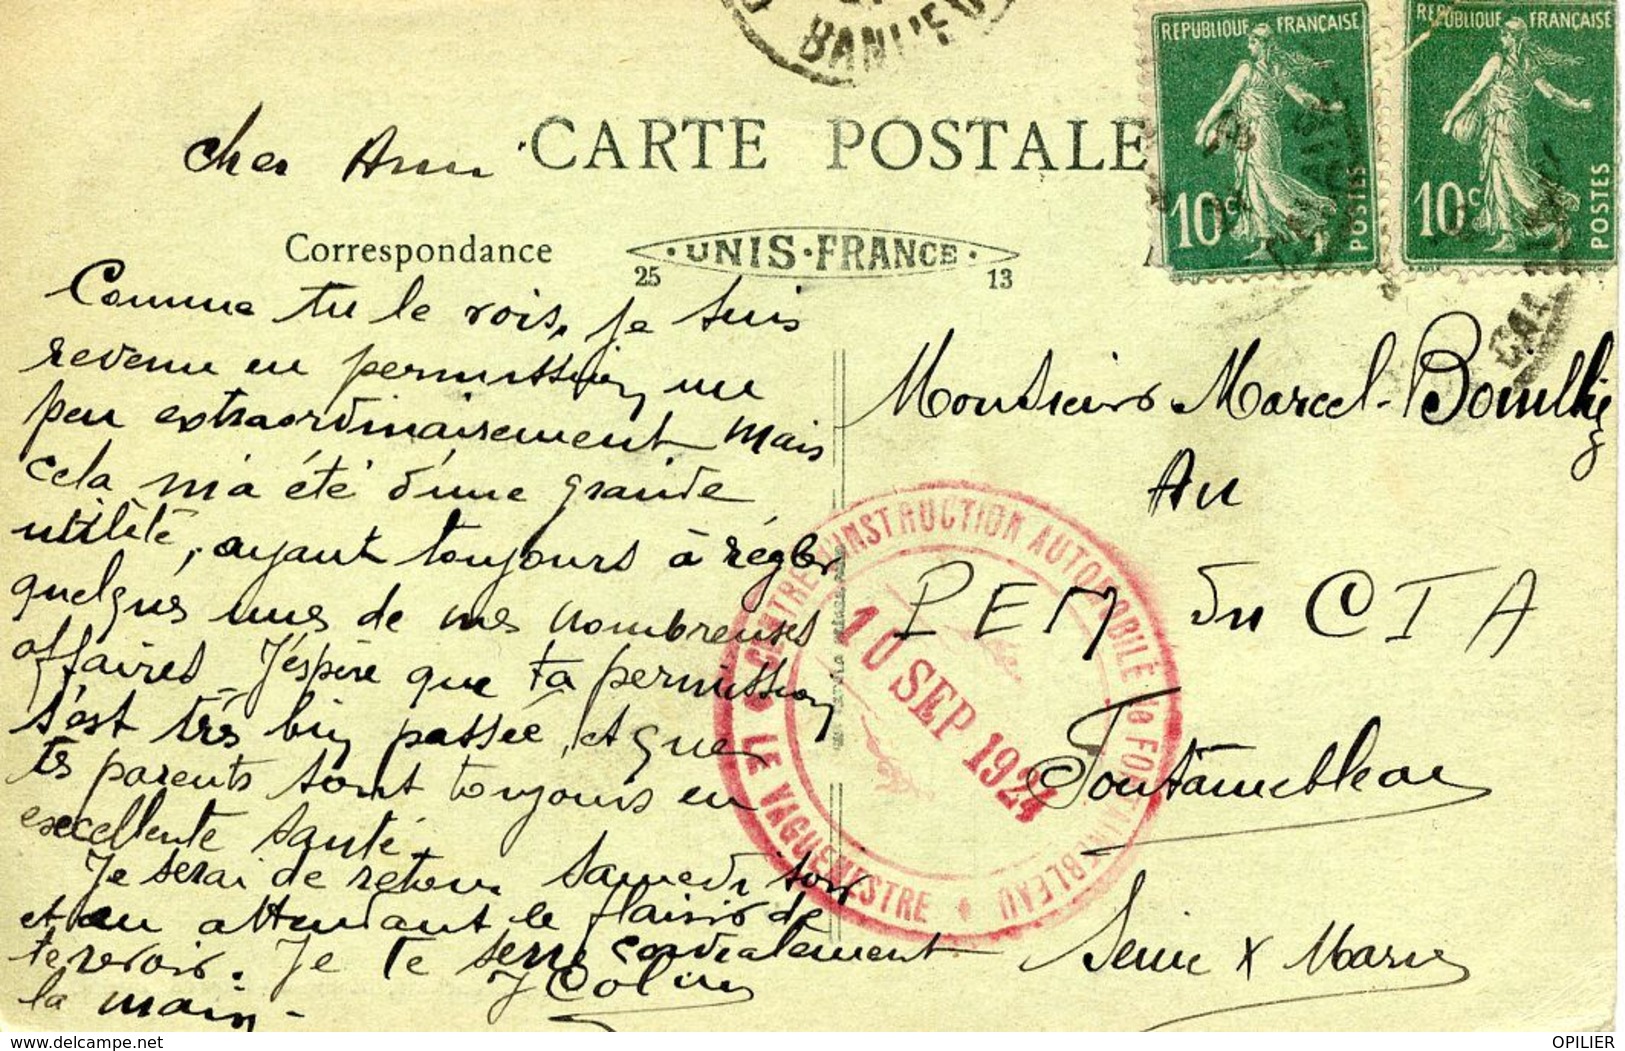 BANLIEUE
REPUBLIQUE FRANÇAISE
10c POSTES
REPUBLIQUE FRANÇAISE
10c POSTES
CARTE POSTALE
cher Ami
Correspondance
UNIS-FRANCE
25 13
Comme tu le vois, je suis
revenu en permission, un
peu extraordinairement mais
cela m'a été d'une grande
utilité, ayant toujours à régler
quelques unes de mes nombreuses
affaires. J'espère que ta permission
s'est très bien passée, et que
tes parents sont toujours en
excellente santé.
Je serai de retour samedi soir
et en attendant le plaisir de
te revoir. Je te serre cordialement
la main.
J Colin
Monsieur Marcel
Au
PEM du CTA
Fontainebleau
Seine x Marne
CENTRE D'INSTRUCTION AUTOMOBILE de FONTAINEBLEAU
10 SEP 1924
LE VAGUEMESTRE
www.delcampe.net
OPILIER